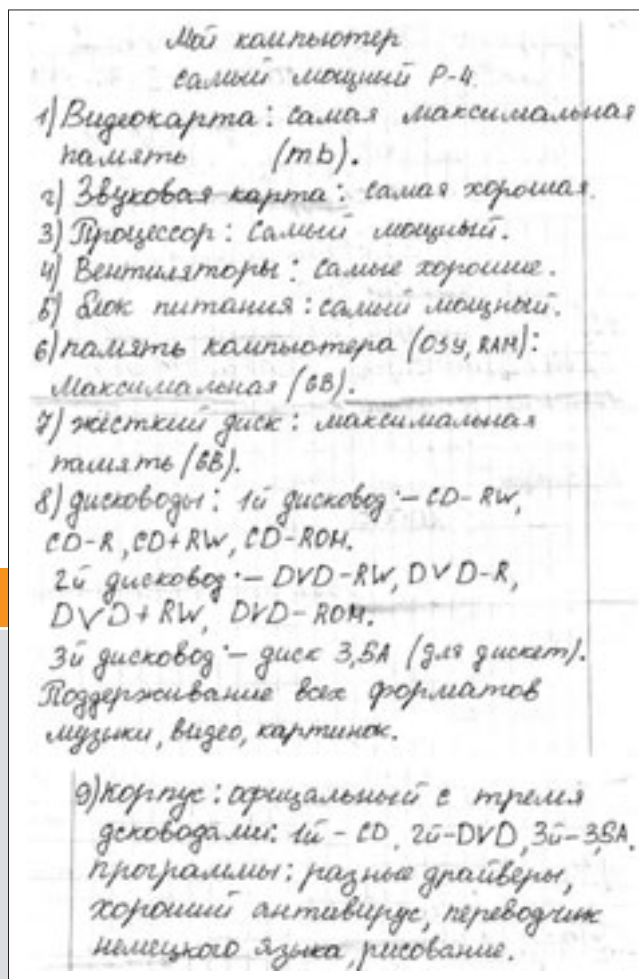 Мой компьютер
самый мощный Р-4.
1) Видеокарта: самая максимальная
память (mb).
2) Звуковая карта: самая хорошая.
3) Процессор: Самый мощный.
4) Вентиляторы: самые хорошие.
5) блок питания: самый мощный.
6) память компьютера (ОЗУ, RAM):
Максимальная (GB).
7) жёсткий диск: максимальная
память (GB).
8) дисководы: 1й дисковод:– CD-RW,
CD-R, CD+RW, CD-ROM.
2й дисковод:– DVD-RW, DVD-R,
DVD+RW, DVD-ROM.
3й дисковод:– диск 3,5А (для дискет).
Поддерживание всех форматов
музыки, видео, картинок.
9) Корпус: офицальный с тремя
дсководами: 1й – CD, 2й-DVD, 3й-3,5А.
программы: разные драйверы,
хороший антивирус, переводчик
немецкого языка, рисование.